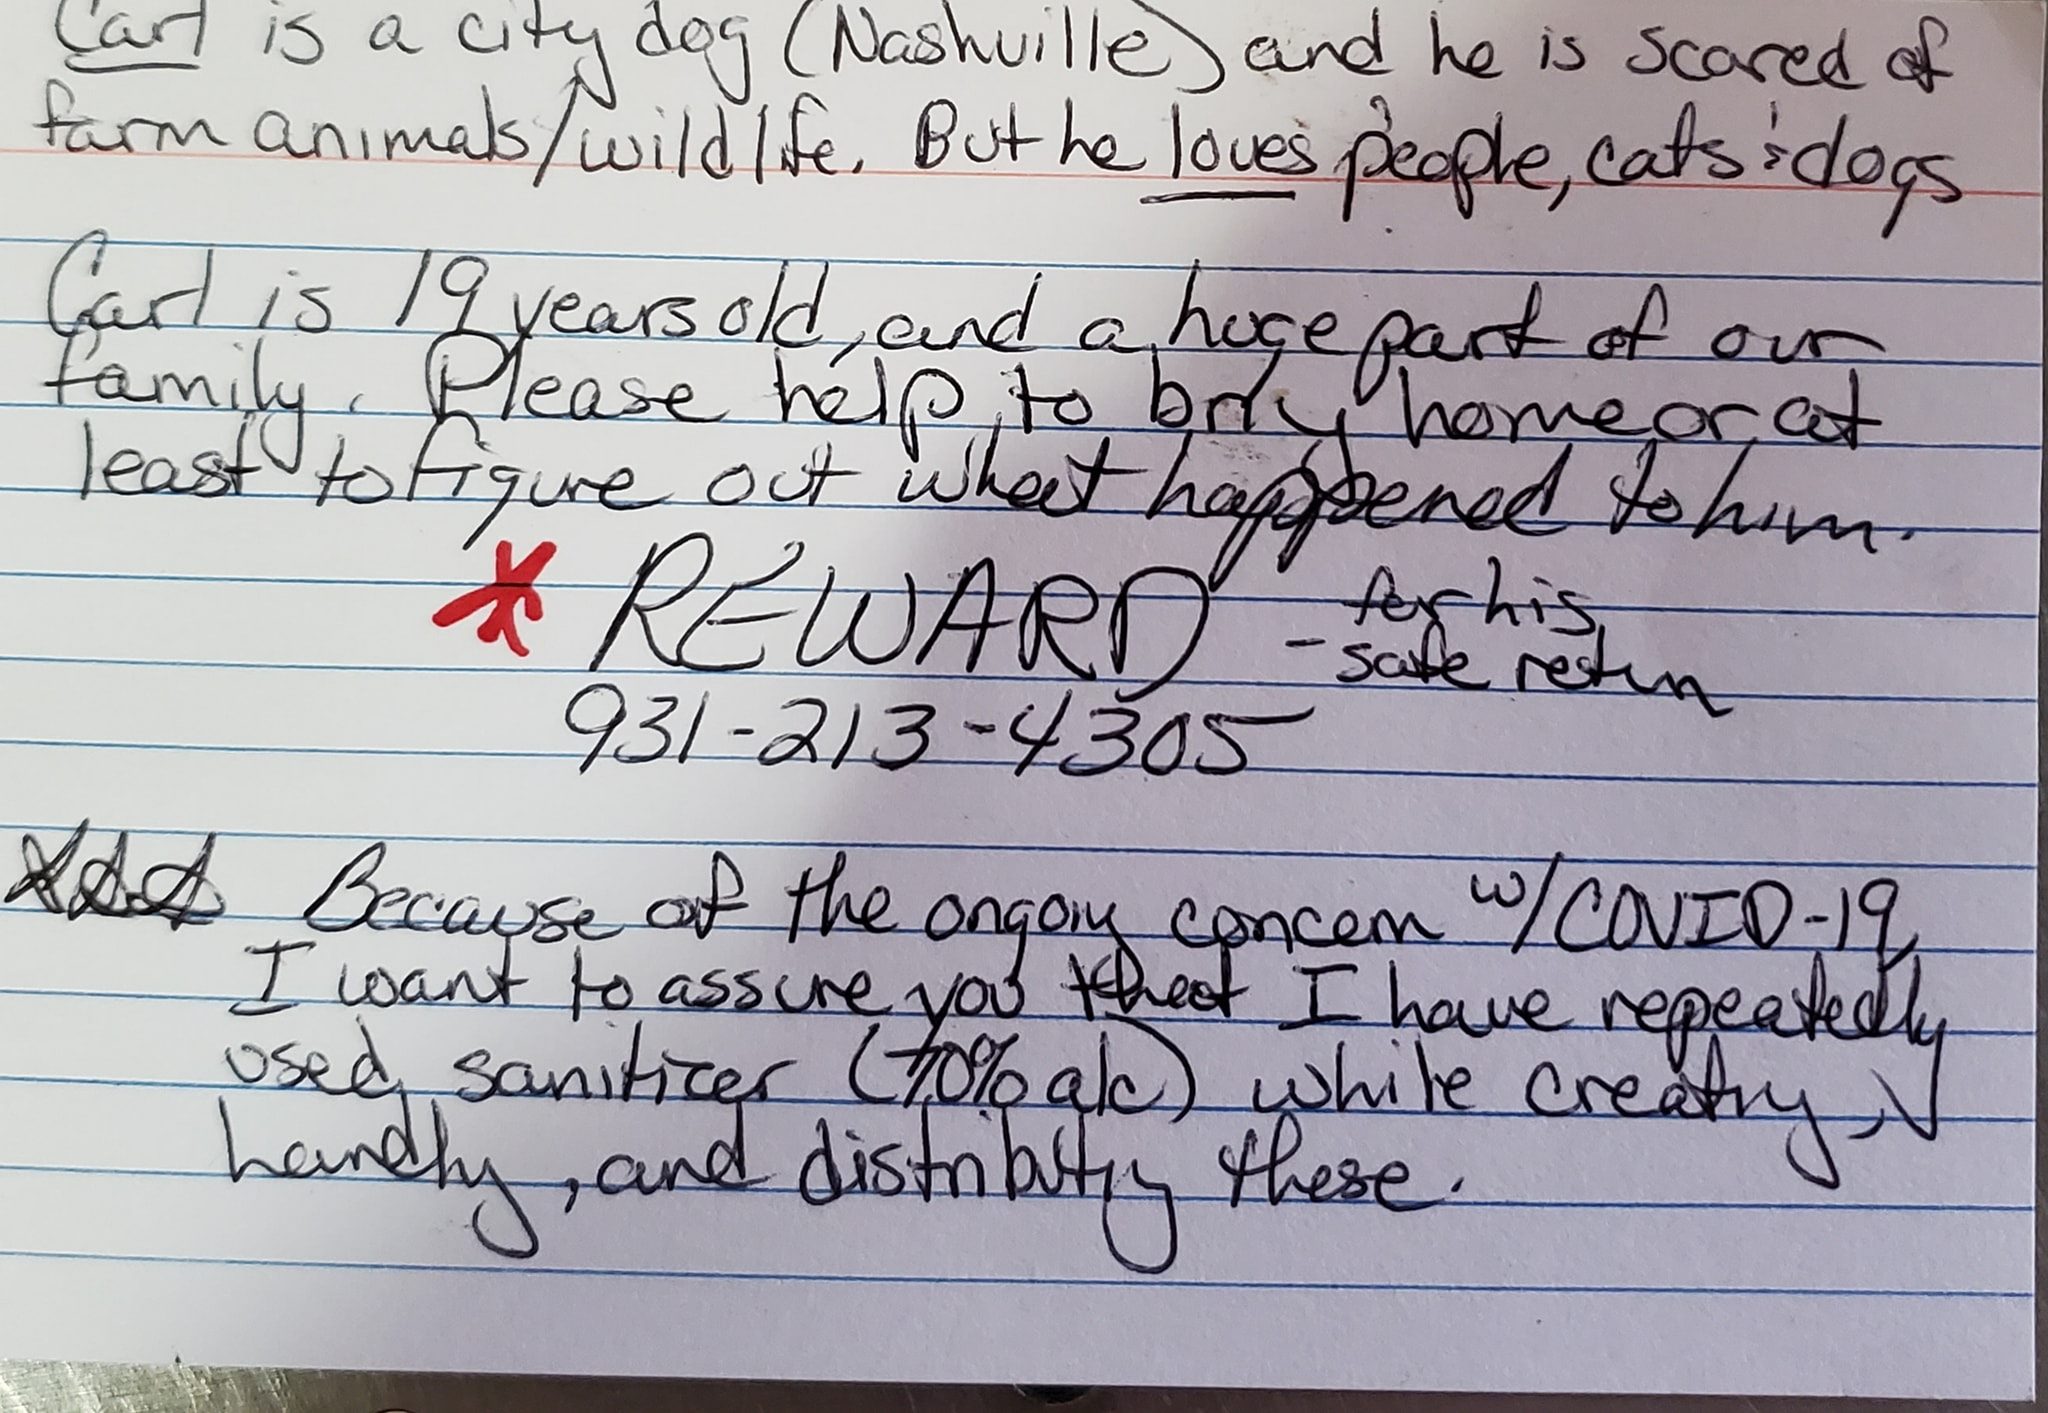 Carl is a city dog (Nashville) and he is scared of
farm animals/wildlife. But he loves people, cats & dogs
Carl is 19 years old, and a huge part of our
family. Please help to bring home or at
least to figure out what happened to him.
* REWARD - for his
- safe return
931-213-4305
*** Because of the ongoing concern w/COVID-19,
I want to assure you that I have repeatedly
used sanitizer (70% alc) while creating,
handling, and distributing these.